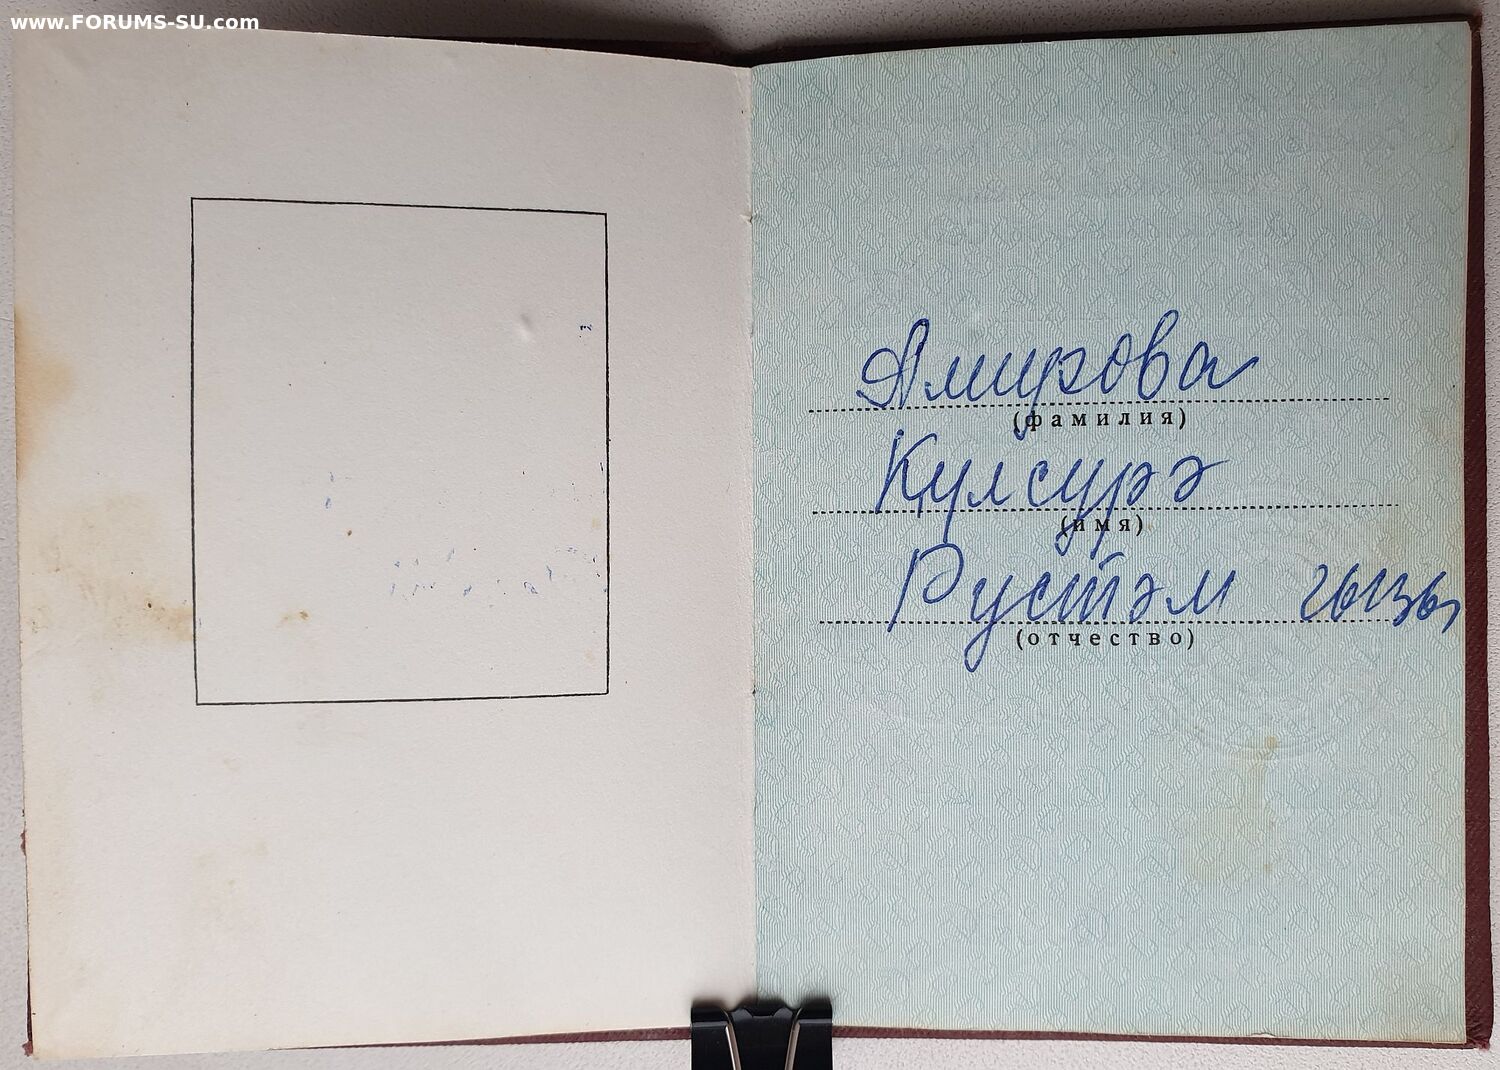 www.FORUMS-SU.com
Амирова
(фамилия)
Күлсурә
(имя)
Рустәм гызы
(отчество)